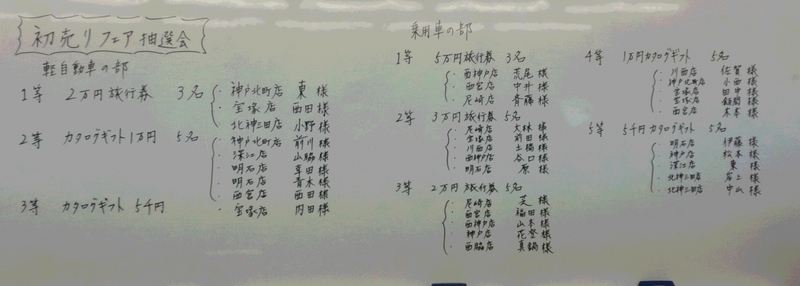 初売りフェア抽選会
軽自動車の部
1等 2万円旅行券 3名
・神戸北町店 東様
・宝塚店 西田様
・北神三田店 小野様
2等 カタログギフト1万円 5名
・神戸北町店 前川様
・深江店 山脇様
・明石店 草田様
・明石店 青木様
・西宮店 西田様
3等 カタログギフト5千円
・宝塚店 内田様
乗用車の部
1等 5万円旅行券 3名
・西神戸店 荒尾様
・西宮店 中井様
・尼崎店 斉藤様
2等 3万円旅行券 5名
・尼崎店 大林様
・宝塚店 前田様
・川西店 土橋様
・西神戸店 谷口様
・明石店 原様
3等 2万円旅行券 5名
・尼崎店 芝様
・西宮店 福田様
・西神戸店 山本様
・神戸店 花登様
・西脇店 真鍋様
4等 1万円カタログギフト 5名
・川西店 佐賀様
・神戸北町店 小西様
・宝塚店 田中様
・宝塚店 様
・西宮店 木本様
5等 5千円カタログギフト 5名
・明石店 伊藤様
・神戸店 松本様
・深江店 東様
・北神三田店 岸上様
・北神三田店 中山様